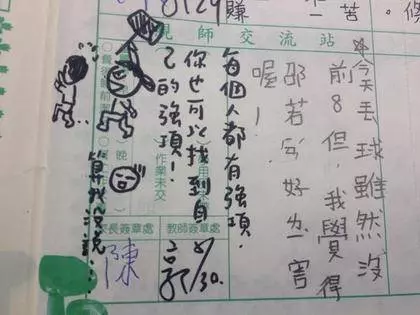 8/29
賺
苦
修
師交流站
今天丟球雖然沒
前8但,我學得
好厲害
喔!
每個人都有強項,
你也可以找到自
己的強項!
算我沒說……
作業未交
家長簽章處
教師簽章處
陳
8/30.